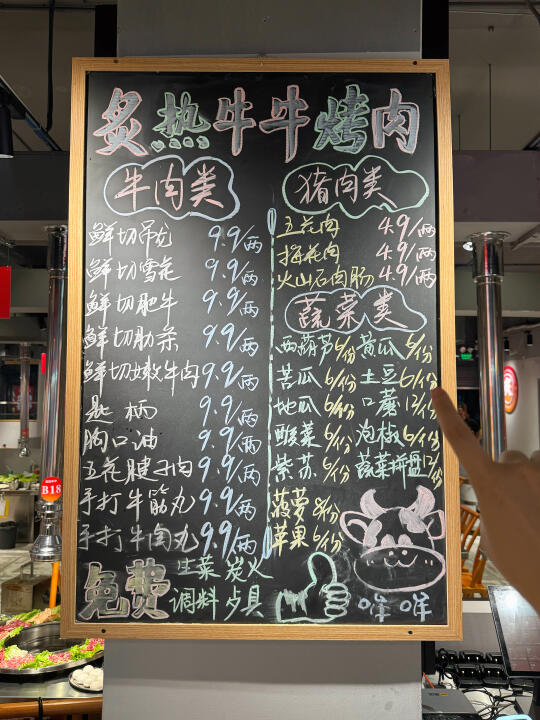 炙热牛牛烤肉
牛肉类
鲜切吊龙 9.9/两
鲜切雪花 9.9/两
鲜切肥牛 9.9/两
鲜切肋条 9.9/两
鲜切嫩牛肉 9.9/两
匙柄 9.9/两
胸口油 9.9/两
五花腱子肉 9.9/两
手打牛筋丸 9.9/两
手打牛肉丸 9.9/两
猪肉类
五花肉 4.9/两
梅花肉 4.9/两
火山石肉肠 4.9/两
蔬菜类
西葫芦 6/份 黄瓜 6/份
苦瓜 6/份 土豆 6/份
地瓜 6/份 口蘑 12/份
酸菜 6/份 泡椒 6/份
紫苏 6/份 蔬菜拼盘 12/份
菠萝 8/份
苹果 6/份
免费 生菜 炭火
调料 夕具
哞哞
B18